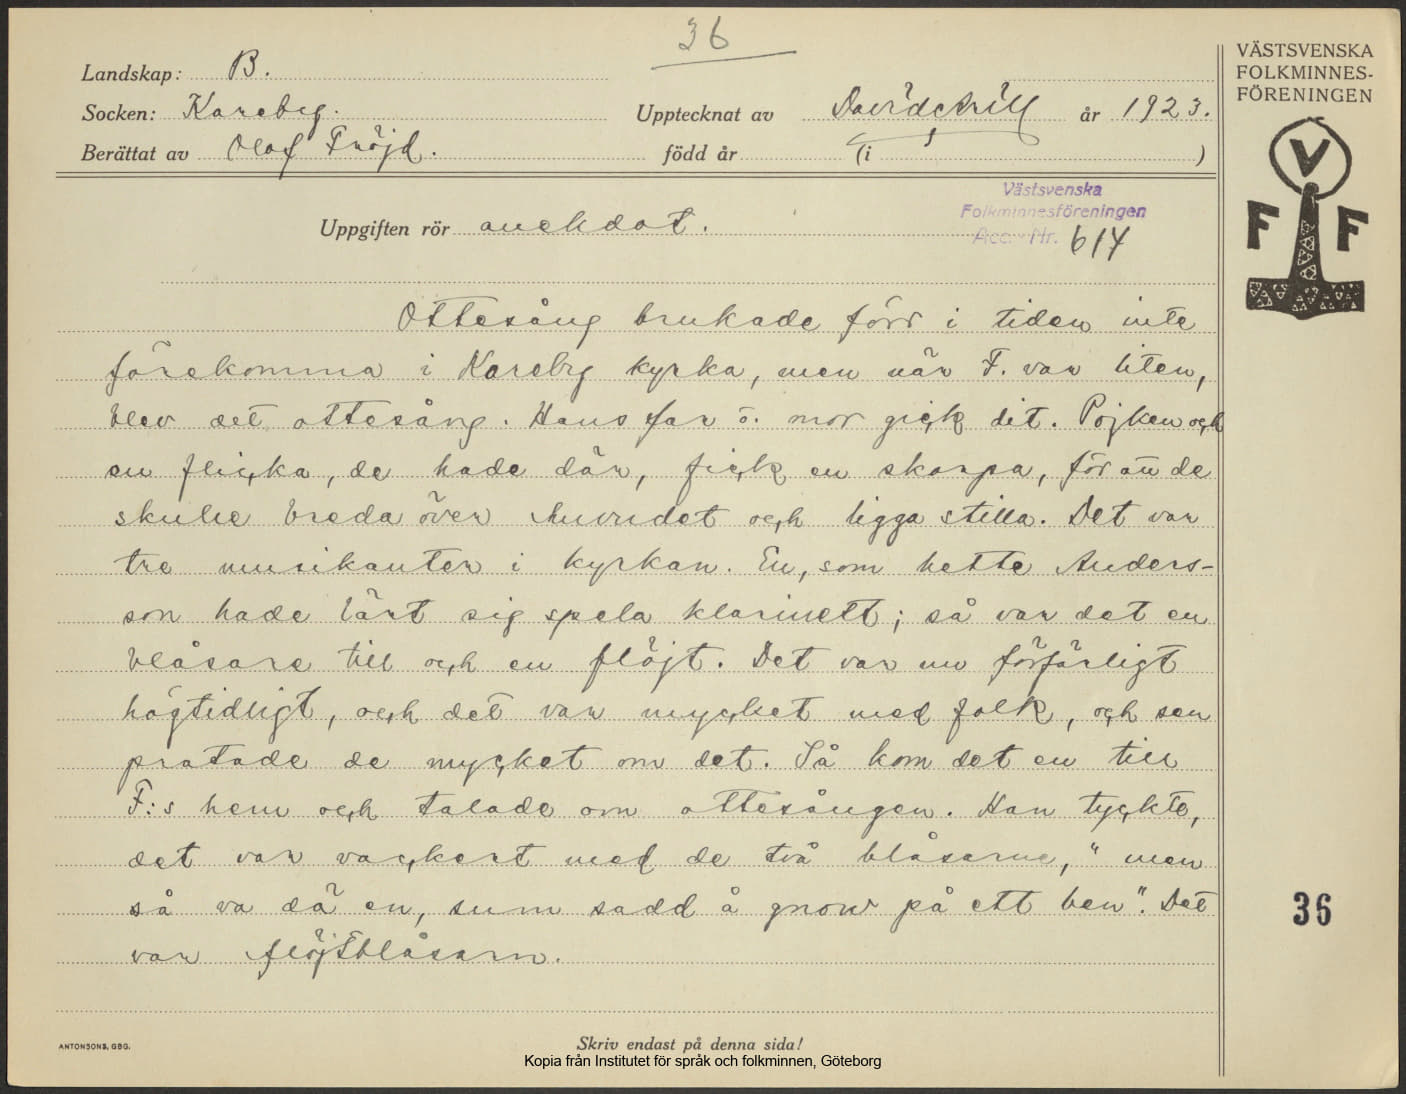 36
Landskap: B.
Socken: Kareby.
Upptecknat av David Arill år 1923.
Berättat av Olof Fröjd.
född år (i )
VÄSTSVENSKA
FOLKMINNES-
FÖRENINGEN
V
F F
Västsvenska
Folkminnesföreningen
Acc. Nr. 614
Uppgiften rör anekdot.
Ottesång brukade förr i tiden inte
förekomma i Kareby kyrka, men när F. var liten,
blev det ottesång. Hans far o. mor gick dit. Pojken och
en flicka, de hade där, fick en skorpa, för att de
skulle breda över huvudet och ligga stilla. Det var
tre musikanter i kyrkan. En, som hette Anders-
son hade lärt sig spela klarinett; så var det en
blåsare till och en flöjt. Det var nu förfärligt
högtidligt, och det var mycket med folk, och sen
pratade de mycket om det. Så kom det en till
F:s hem och talade om ottesången. Han tyckte,
det var vackert med de två blåsarne, "men
så va dä en, sum sadd å gnow på ett ben". Det
var flöjtblåsarn.
36
ANTONSONS, GBG.
Skriv endast på denna sida!
Kopia från Institutet för språk och folkminnen, Göteborg